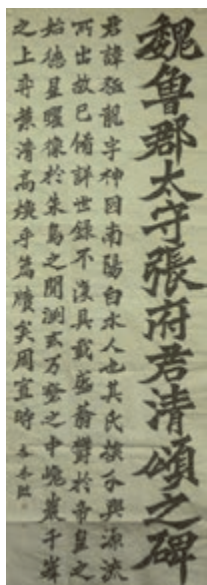 魏魯郡太守張府君清頌之碑
君諱猛龍字神囧南陽白水人也其氏族分興源流
所出故已備詳世錄不復具載盛蓊鬱於帝皇之
始德星曜像於朱鳥之間淵玄万壑之中巉巖千峯
之上弈葉清高煥乎篇牘矣周宣時